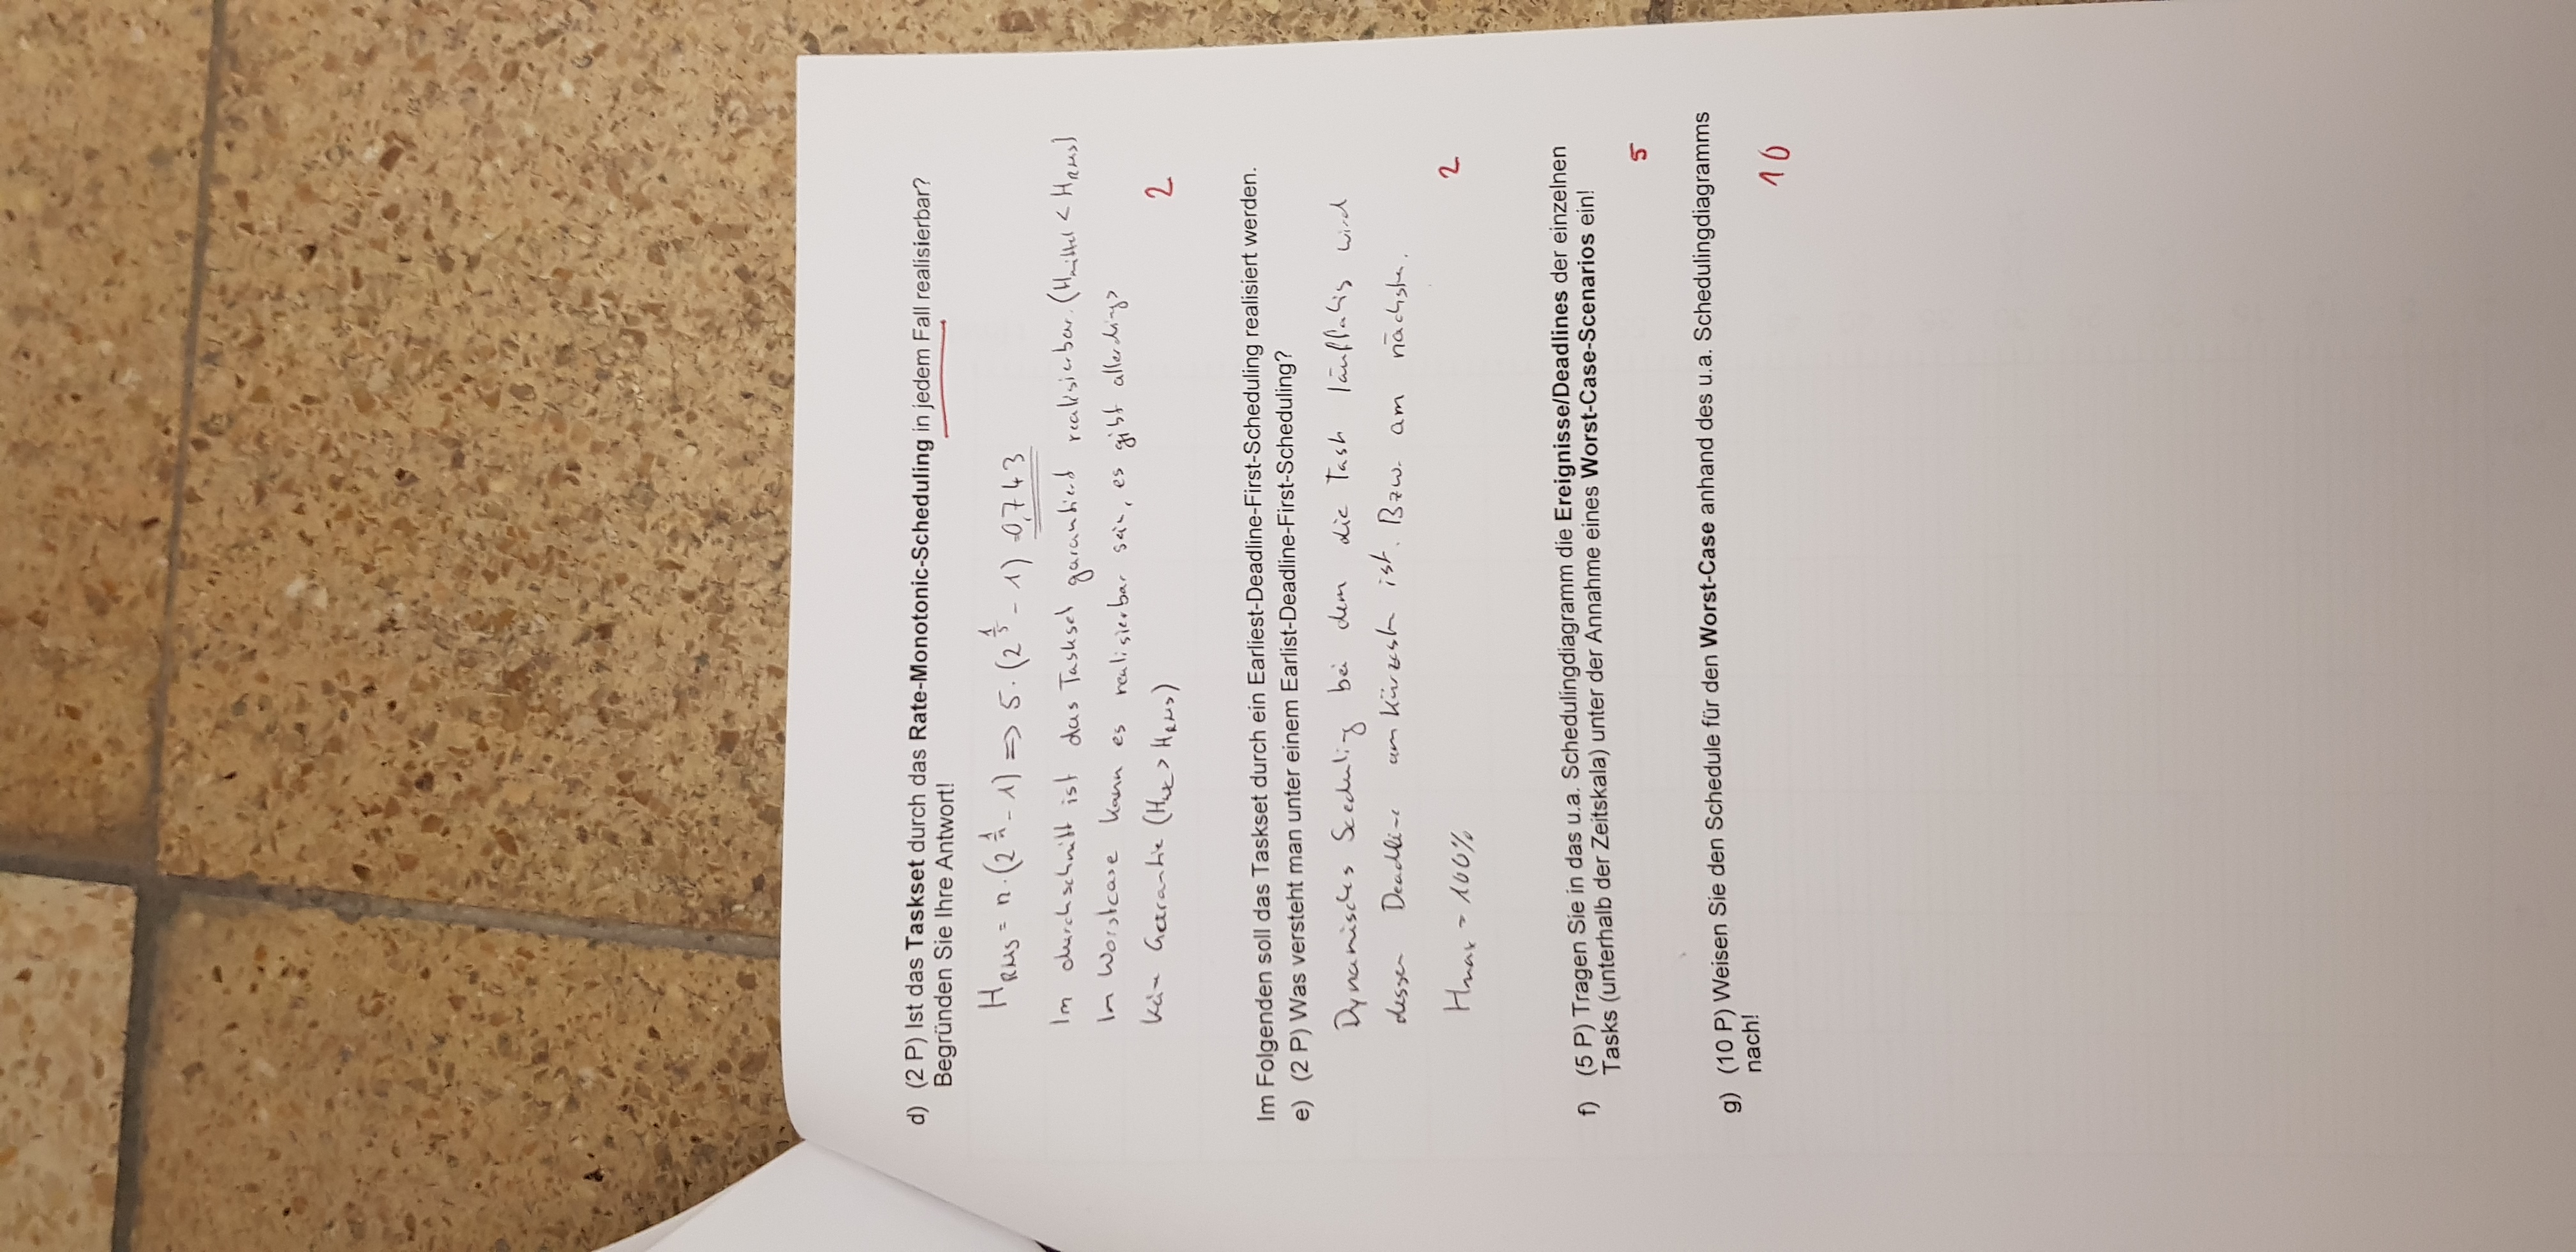 d) (2 P) Ist das Taskset durch das Rate-Monotonic-Scheduling in jedem Fall realisierbar?
Begründen Sie Ihre Antwort!
H_RMS = n · (2^(1/n) - 1) => 5 · (2^(1/5) - 1) = 0,743
Im durchschnitt ist das Taskset garantiert realisierbar. (H_mittel < H_RMS)
Im Worstcase kann es realisierbar sein, es gibt allerdings
kein Garantie (H_wc > H_RMS)
2
Im Folgenden soll das Taskset durch ein Earliest-Deadline-First-Scheduling realisiert werden.
e) (2 P) Was versteht man unter einem Earlist-Deadline-First-Scheduling?
Dynamisches Sceduling bei dem die Task lauffähig wird
dessen Deadline am kürzesten ist. Bzw. am nächsten.
H_max = 100%
2
f) (5 P) Tragen Sie in das u.a. Schedulingdiagramm die Ereignisse/Deadlines der einzelnen
Tasks (unterhalb der Zeitskala) unter der Annahme eines Worst-Case-Scenarios ein!
5
g) (10 P) Weisen Sie den Schedule für den Worst-Case anhand des u.a. Schedulingdiagramms
nach!
10